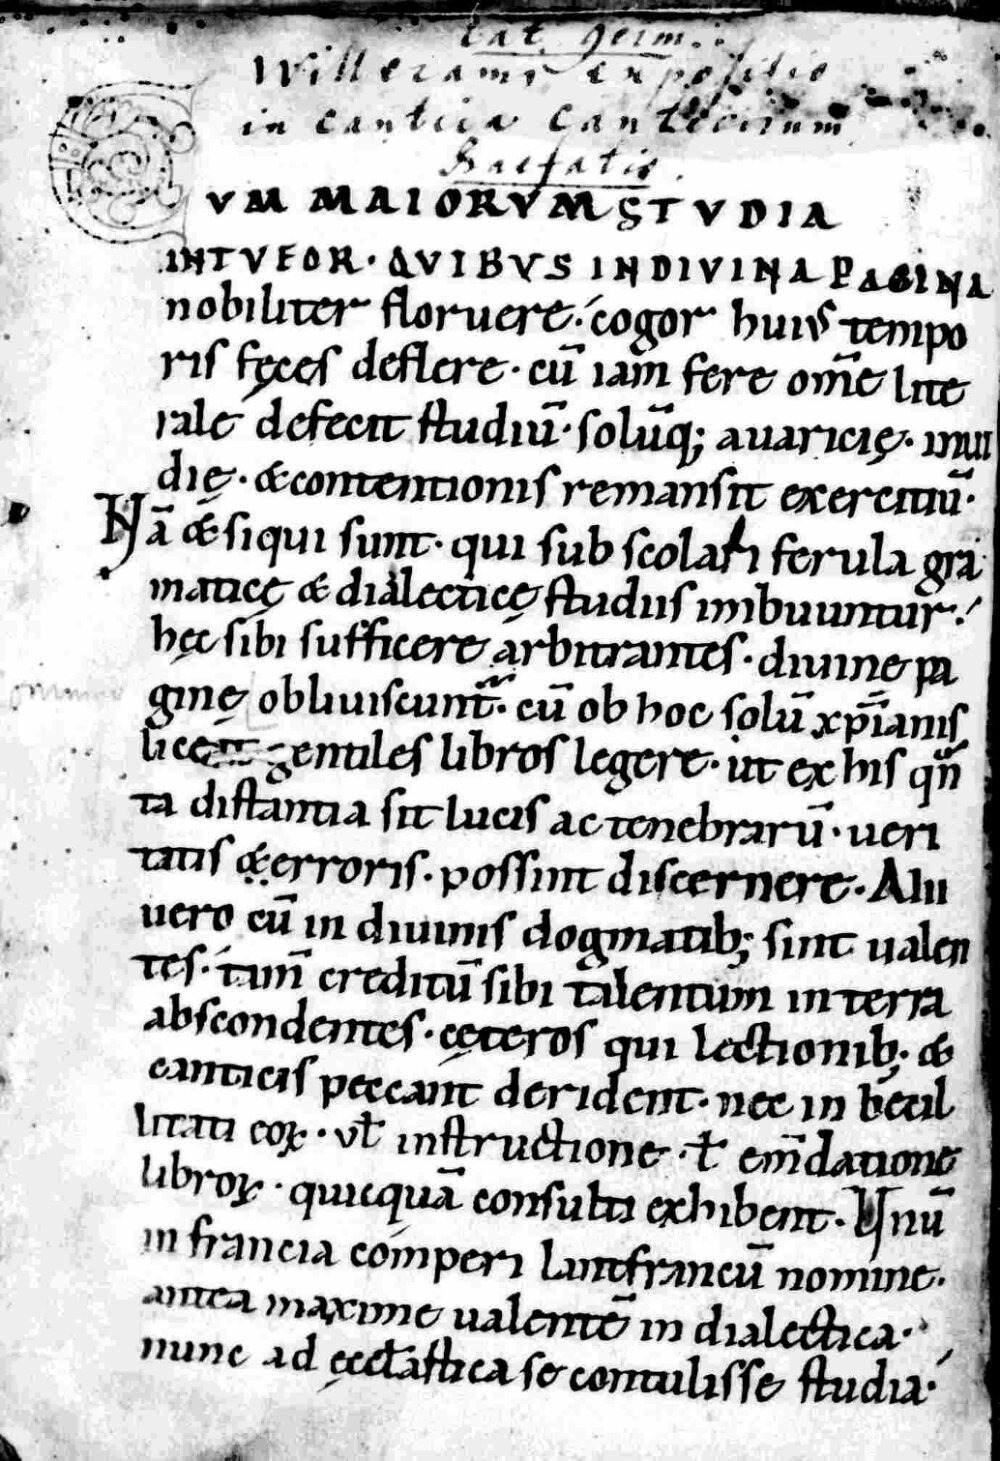 lat. germ.
Willerami expositio
in cantica Canticorum
Praefatio.
CVM MAIORVM STVDIA
INTVEOR · QVIBVS IN DIVINA PAGINA
nobiliter floruere · cogor huiꝰ tempo
ris fęces deflere · cū iam fere om̄e lite
rale defecit studiū · solūq; auaricię · inui
dię · & contentionis remansit exercitiū ·
Nā & siqui sunt · qui sub scolari ferula grā
maticę & dialecticę studiis imbuuntur ·
hęc sibi sufficere arbitrantes · diuinę pa
ginę obliuiscunt̄ · cū ob hoc solū xp̄ianis
liceat gentiles libros legere · ut ex his qn̄
ta distantia sit lucis ac tenebrarū · ueri
tatis & erroris · possint discernere · Alii
uero cū in diuinis dogmatib; sint ualen
tes · tam̄ creditū sibi talentum in terra
abscondentes · cęteros qui lectionib; &
canticis peccant derident · nec imbecil
litati eoꝝ · vł instructione · ł em̄datione
libroꝝ · quicquā consulti exhibent · Unū
in francia comperi lantfrancū nomine ·
antea maxime ualentē in dialectica ·
nunc ad ęccłastica se contulisse studia ·